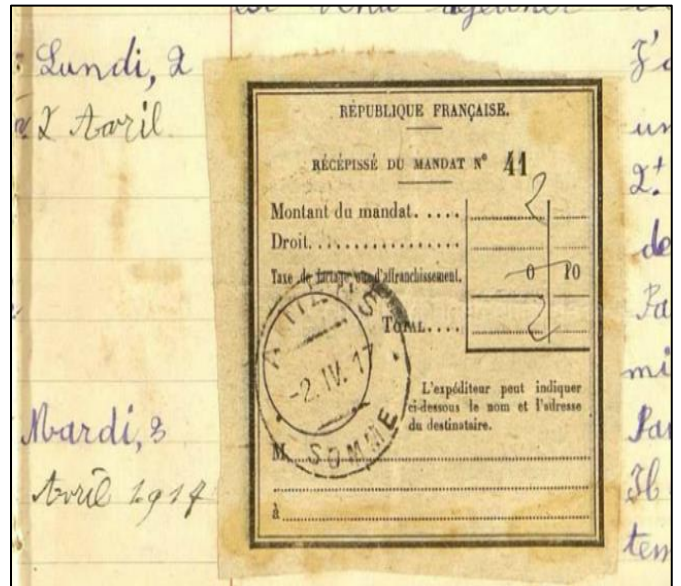 Lundi, 2
2 Avril
J'a
un
2.t
de
Pa
mi
Par
Il
tem
RÉPUBLIQUE FRANÇAISE.
RÉCÉPISSÉ DU MANDAT N° 41
Montant du mandat..... 2
Droit.................
Taxe de factage ou d'affranchissement. 0 10
TOTAL.... 2
-2. IV. 17
SOMME
L'expéditeur peut indiquer
ci-dessous le nom et l'adresse
du destinataire.
M
à
Mardi, 3
Avril 1917